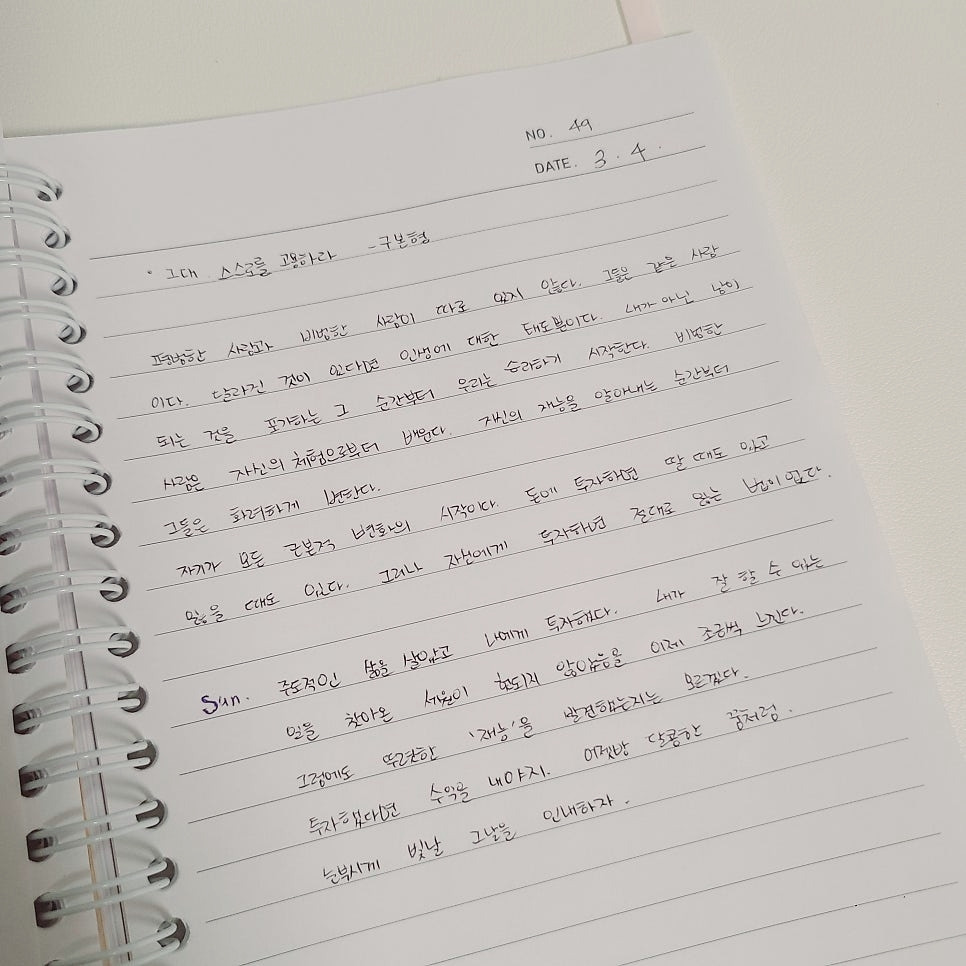 NO. 49
DATE. 3. 4.
· 그대 스스로를 고용하라 - 구본형
평범한 사람과 비범한 사람이 따로 있지 않다. 그들은 같은 사람
이다. 달라진 것이 있다면 인생에 대한 태도뿐이다. 내가 아닌 남이
되는 것을 포기하는 그 순간부터 우리는 승리하기 시작한다. 비범한
사람은 자신의 체험으로부터 배운다. 자신의 재능을 알아내는 순간부터
그들은 화려하게 변한다.
자기가 모든 근본적 변화의 시작이다. 돈에 투자하면 딸 때도 있고
잃을 때도 있다. 그러나 자신에게 투자하면 절대로 잃는 법이 없다.
Sun. 주도적인 삶을 살았고 나에게 투자했다. 내가 잘 할 수 있는
일을 찾아온 세월이 헛되지 않았음을 이제 조금씩 느낀다.
그럼에도 뚜렷한 '재능'을 발견했는지는 모르겠다.
투자했다면 수익을 내야지. 어젯밤 달콤한 꿈처럼.
눈부시게 빛날 그날을 인내하자.